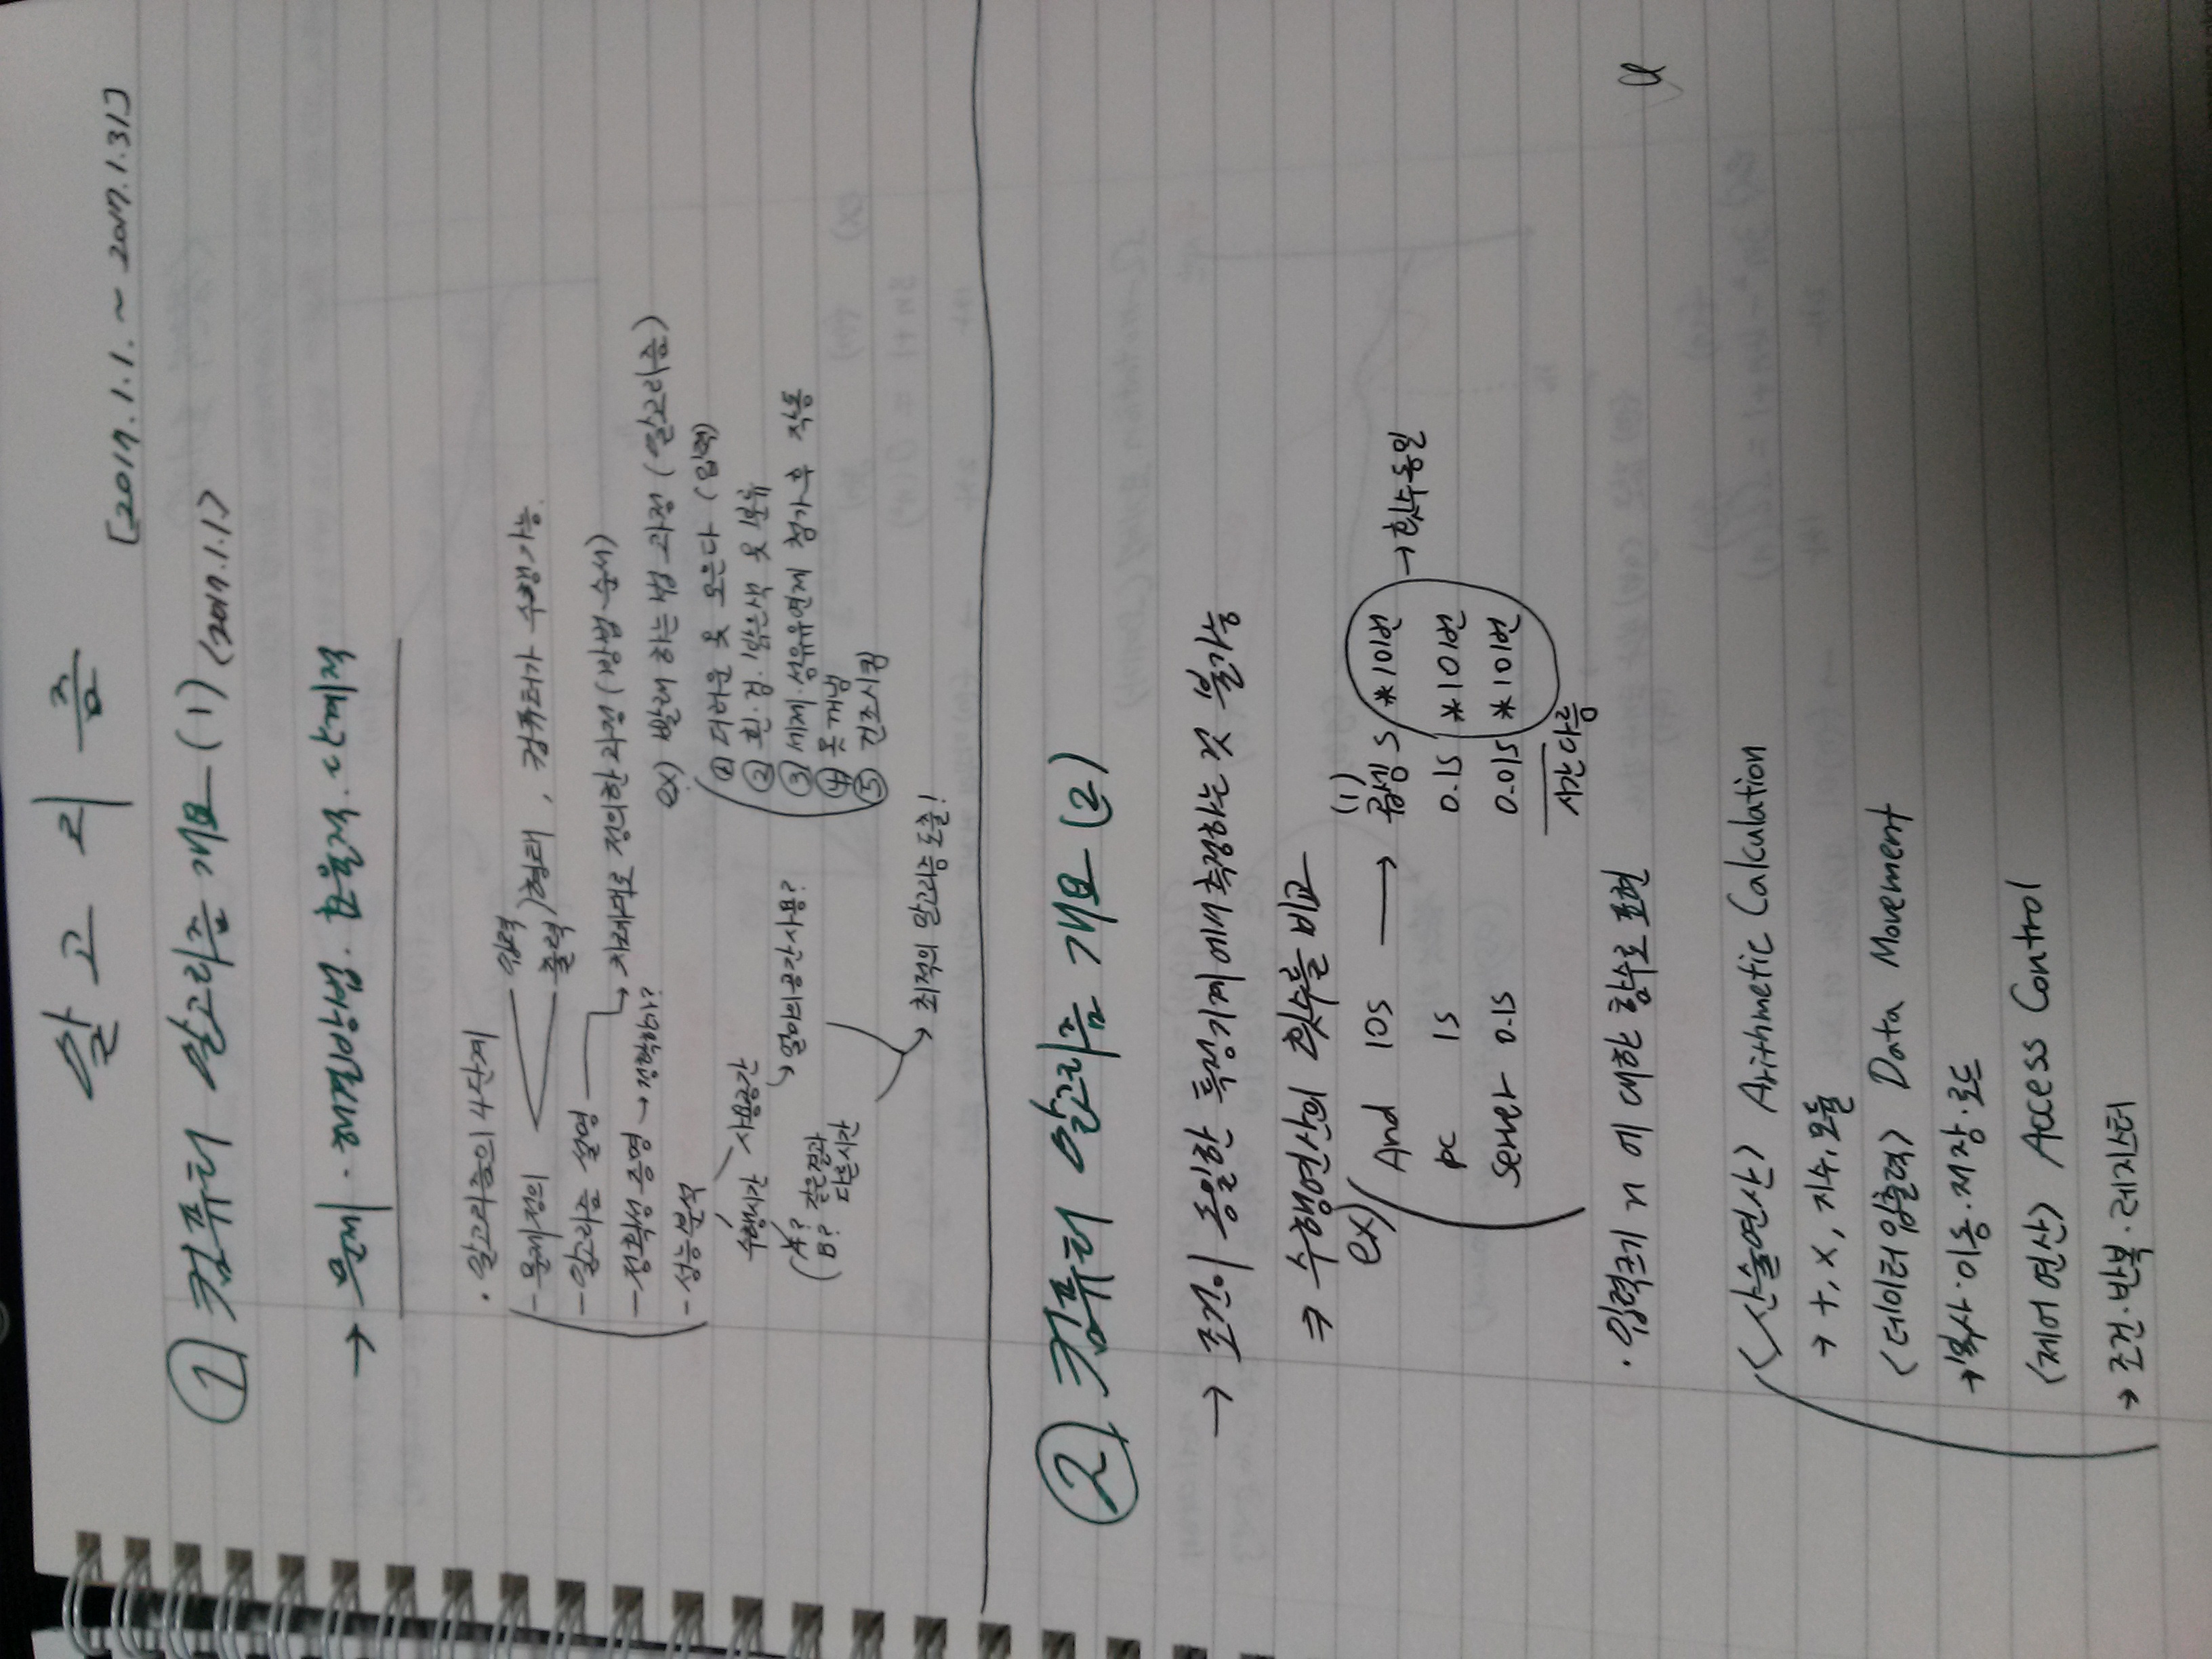 알고리즘
[2017.1.1. ~ 2017.1.31]
① 컴퓨터 알고리즘 개요 (1) <2017.1.1>
→ 문제 · 해결방법 · 효율적 · 단계적
· 알고리즘의 4단계
- 문제정의
입력
출력
) 형태, 컴퓨터가 수행가능.
- 알고리즘 설명 → 차례대로 정의한 과정 (방법·순서)
- 정확성 증명 → 정확한가?
- 성능분석
수행시간 사용공간
A? B? 같은결과 다른시간
→ 얼마의 공간 사용?
→ 최적의 알고리즘 도출!
ex) 빨래 하는 법 과정 (알고리즘)
① 더러운 옷 모은다 (입력)
② 흰·검·밝은색 옷 분류
③ 세제·섬유유연제 첨가 후 작동
④ 옷 꺼냄
⑤ 건조시킴
② 컴퓨터 알고리즘 개요 (2)
→ 조건이 동일한 특정기계에서 측정하는 것 불가능
⇒ 수행연산의 횟수를 비교
(1)
ex) And 10s → 곱셈 s *101번
pc 1s 0.1s *101번 → 횟수동일
server 0.1s 0.01s *101번
시간다름
· 입력크기 n 에 대한 함수로 표현
<산술연산> Arithmetic Calculation
→ +, ×, 지수, 모듈
<데이터 입출력> Data Movement
→ 복사·이동·저장·로드
<제어 연산> Access Control
→ 조건·반복·레지스터